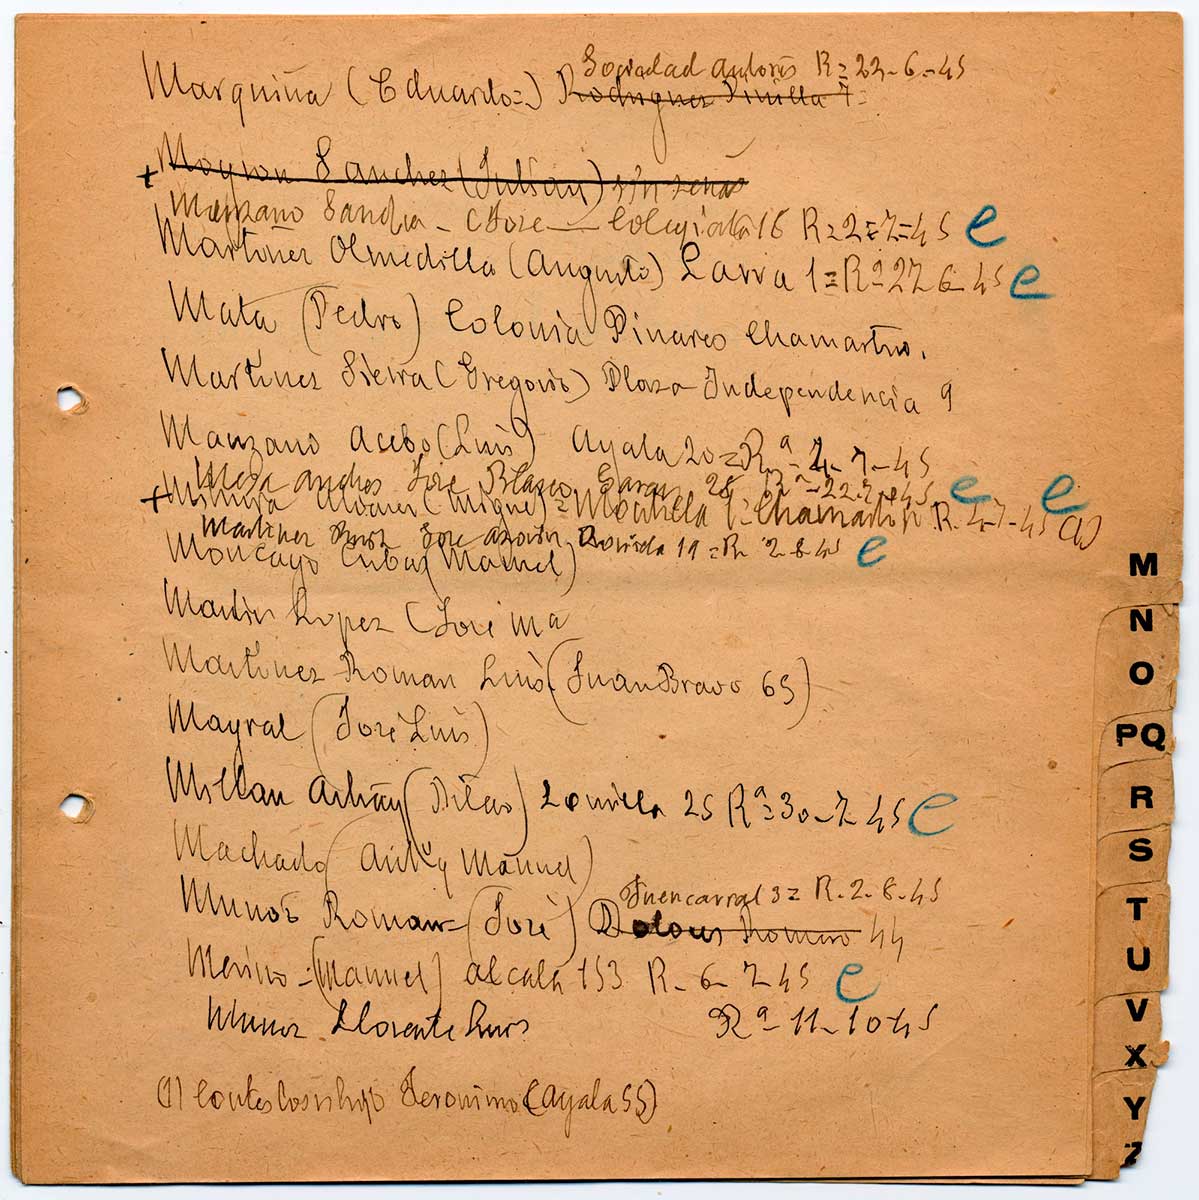 Sociedad autores R= 22-6-45
Marquina (Eduardo=) Rodriguez Pinilla 7=
+ Moyron Sanchez (Julian) sin señas
Manzano Sancha - (Jose — Colegiata 16 R=2=7=45 e
Martinez Olmedilla (Augusto) Larra 1=Rª=27 6-45 e
Mata (Pedro) Colonia Pinares Chamartin.
Martinez Sierra (Gregorio) Plaza Independencia 9
Manzano Acebo (Luis) Ayala 20=Rª-2-7-45
Mesa Andres Jose Blasco Garay 28 Rª=22-7-45 e
+ Mihura Alvarez (Miguel)= 1= Chamartin R. 4-7-45 (1) e
Martinez Ruiz Jose Azorin Zorrida 19=R. 2-8-45 e
Moncayo Cubas (Manuel)
Martin Lopez (Jose Mª
Martinez Roman Luis (Juan Bravo 65)
Mayral (José Luis)
Millan Astray (Pilar) 25 Rª=30-7-45 e
Machado (Ant. y Manuel)
Fuencarral 3= R. 2-8-45
Muñoz Roman= (José) Dolores Romero 44
Merino = (Manuel) Alcala 153 R-6-7-45 e
Munoz Llorente Luis Rª-11-10-45
(1) Contesto su hijo Jeronimo (Ayala 55)
M
N
O
PQ
R
S
T
U
V
X
Y
Z